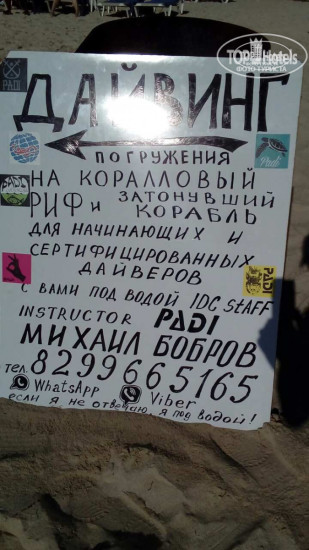 TOPHotels
ФОТО ТУРИСТА
PADI
ДАЙВИНГ
ПОГРУЖЕНИЯ
НА КОРАЛЛОВЫЙ
РИФ И ЗАТОНУВШИЙ
КОРАБЛЬ
ДЛЯ НАЧИНАЮЩИХ И
СЕРТИФИЦИРОВАННЫХ
ДАЙВЕРОВ
С ВАМИ ПОД ВОДОЙ IDC STAFF
INSTRUCTOR PADI
МИХАИЛ БОБРОВ
тел. 8299665165
WhatsApp Viber
если я не отвечаю, я под водой!